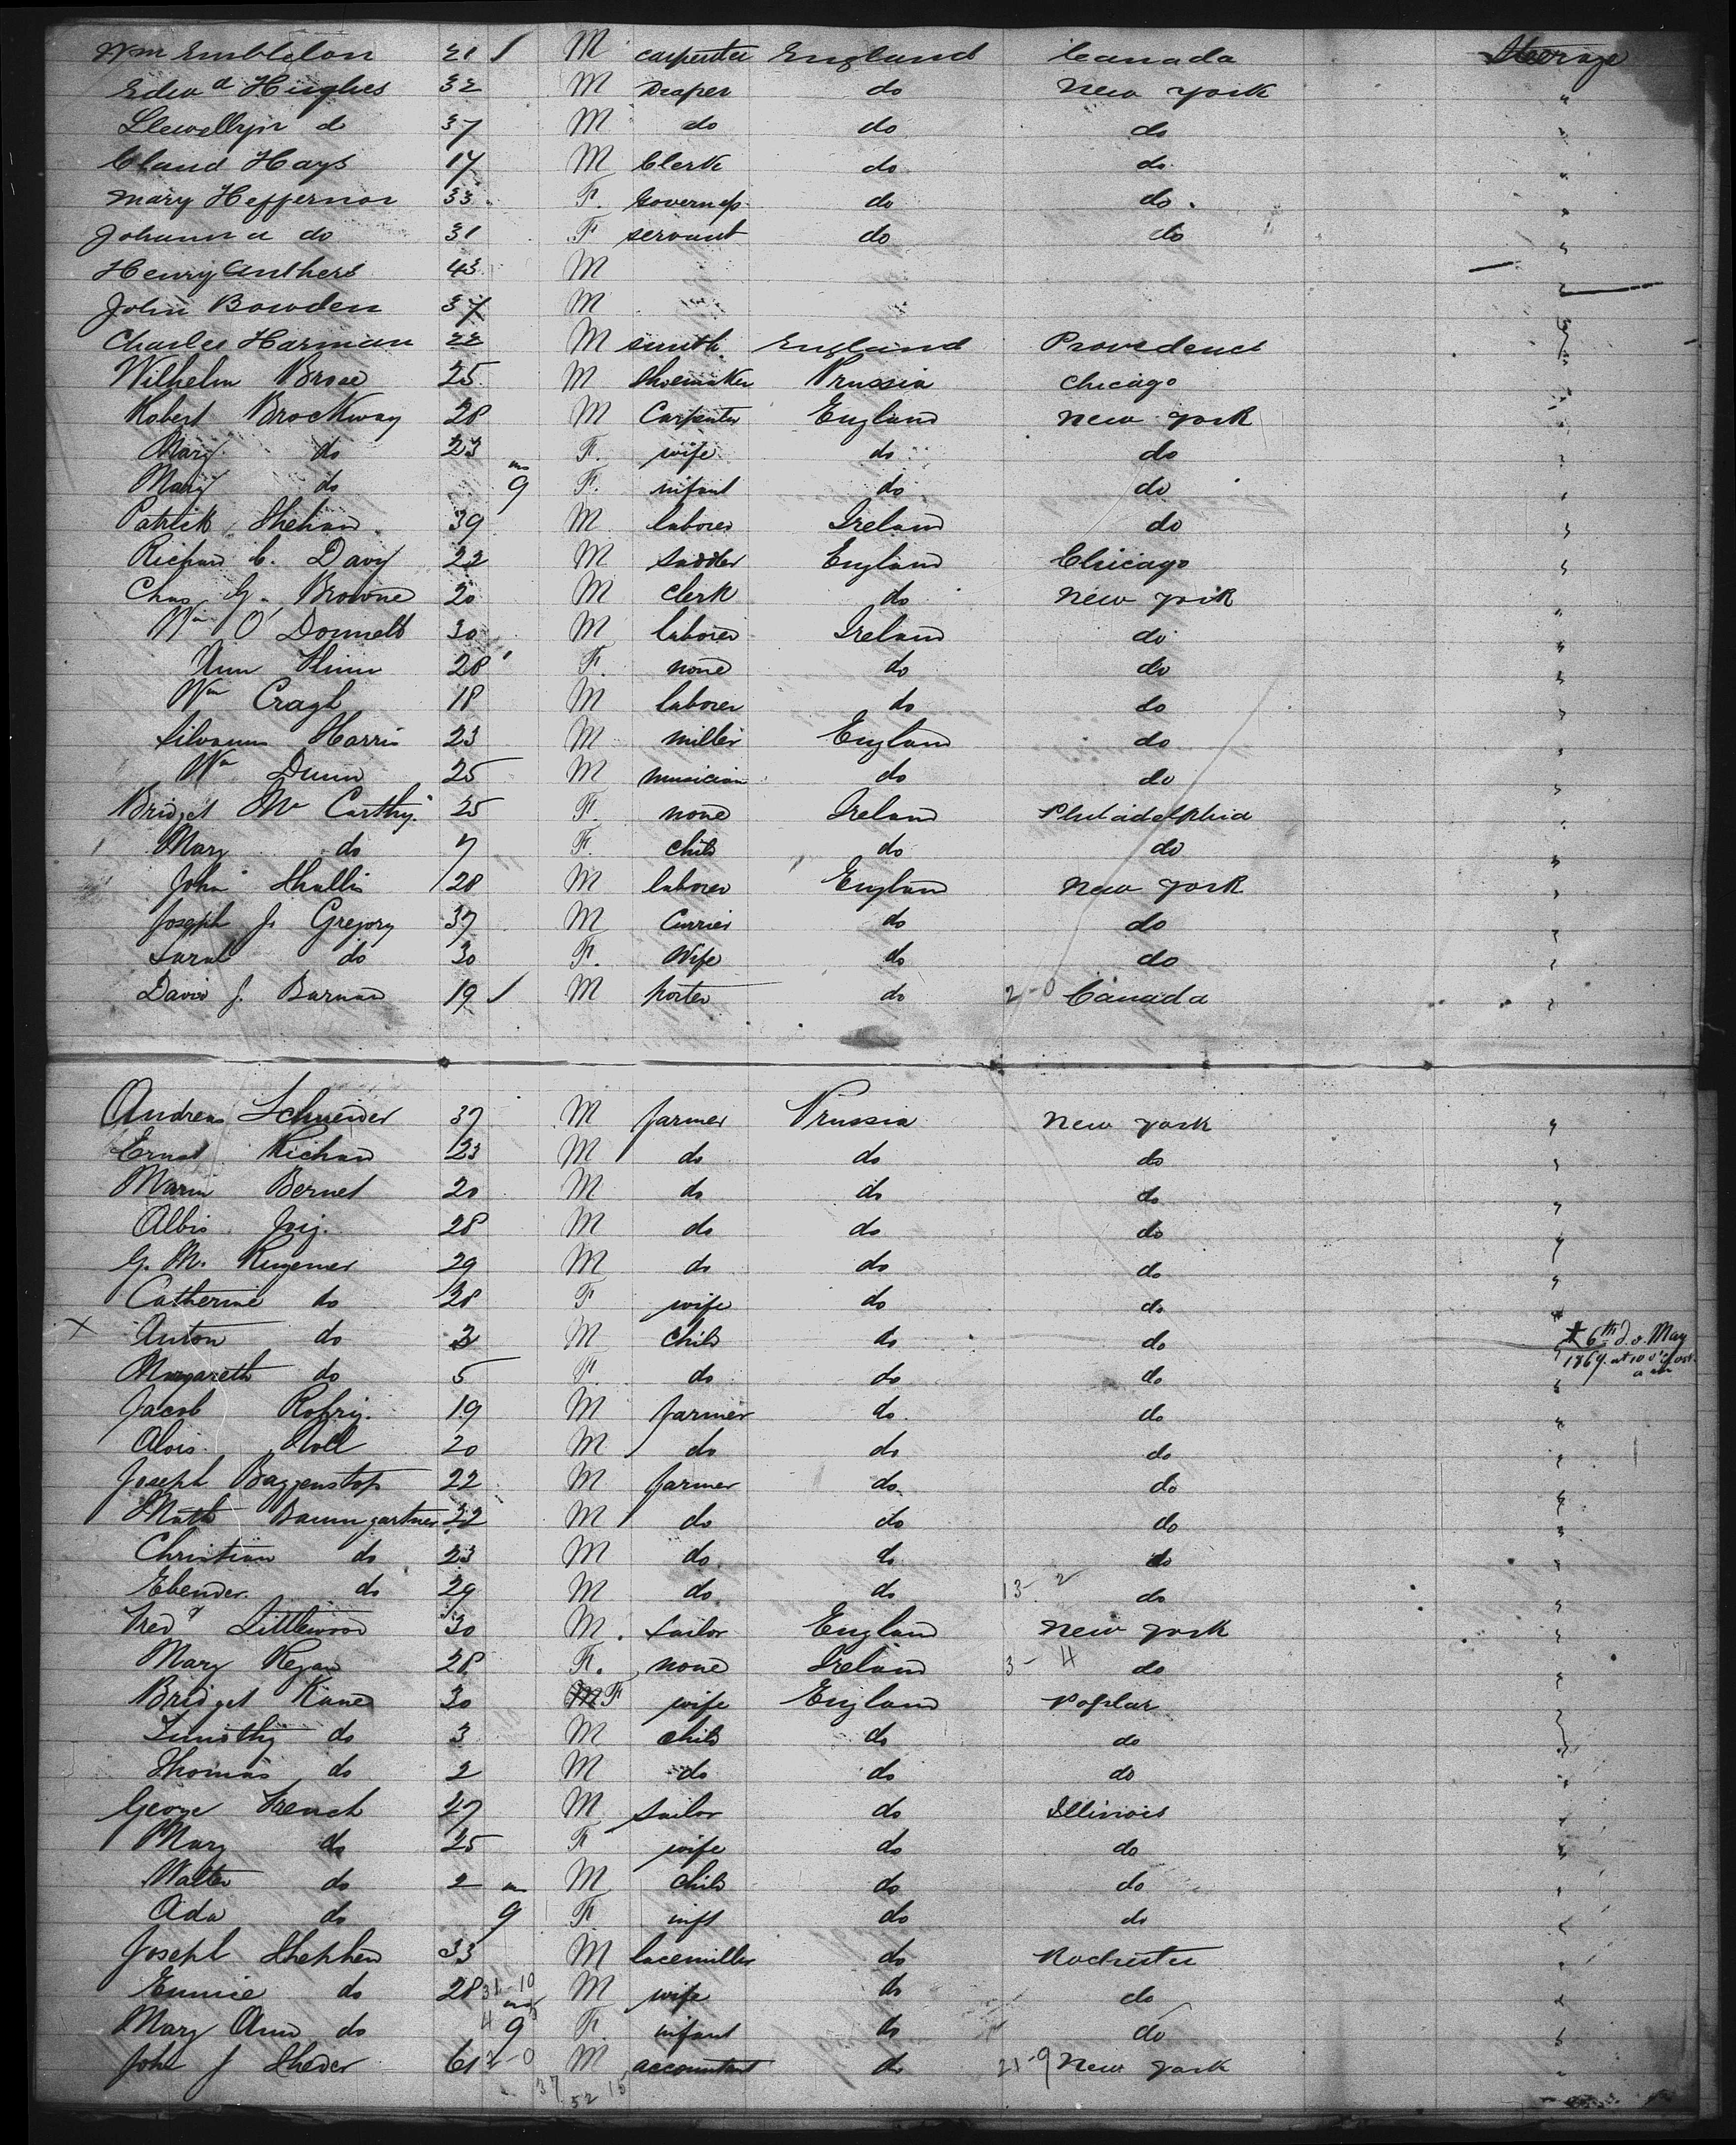 Wm Embleton 21 / M carpenter England Canada Steerage
Edwd Hughes 32 M Draper do New York "
Llewellyn do 37 M do do do "
Claud Hays 17 M Clerk do do "
Mary Heffernon 33 F. Governess do do "
Johanna do 31 F servant do do "
Henry Anthers 43 M "
John Bowden 37 M "
Charles Harman 22 M smith England Providence "
Wilhelm Brose 25 M Shoemaker Prussia Chicago "
Robert Brockway 28 M Carpenter England New York "
Mary do 23 F. wife do do "
Mary do mo 9 F. infant do do "
Patrick Shehan 39 M laborer Ireland do "
Richard C. Davy 22 M Saddler England Chicago "
Chas G. Browne 20 M Clerk do New York "
Wm O'Donnell 30 M laborer Ireland do "
Ann 28 F. none do do "
Wm 18 M laborer do do "
Silvanus Harris 23 M miller England do "
Wm Dunn 25 M musician do do "
Bridget Mc Carthy 25 F. none Ireland Philadelphia "
Mary do 7 F. child do do "
John Shallis 28 M laborer England New York "
Joseph J. Gregory 37 M Currier do do "
Sarah do 30 F. Wife do do "
David J. Barnard 19 / M porter do 2-0 Canada "
Andreas Schneider 37 M farmer Prussia New York "
Ernst Richard 23 M do do do "
Marin Bernet 20 M do do do "
Albis 28 M do do do "
G. M. 29 M do do do "
Catherine do 28 F wife do do "
X Anton do 2 M Child do do " † 6th d. o. May
1869. at 10 o'Clock
a m
Margareth do 5 F. do do do "
Jacob 19 M farmer do do "
Alois 20 M do do do "
Joseph Baggenstos 22 M farmer do do "
Math Baumgartner 22 M do do do "
Christian do 23 M do do do "
do 29 M do do 13-2 do "
Fredk Littlewood 30 M. sailor England New York "
Mary Regan 28 F. none Ireland 3-4 do "
Bridget Kane 30 M F wife England Poplar "
Timothy do 3 M child do do "
Thomas do 2 M do do do "
George French 27 M sailor do Illinois "
Mary do 25 F wife do do "
Walter do 2 M child do do "
Ada do mo 9 F inft do do "
Joseph Shepherd 33 M lacemiller do Rochester "
Eunice do 28 31-10 M wife do do "
Mary Ann do 4 mos 9 F. infant do do "
John J 61 2-0 M accountant do 21-9 New York "
37 52 15